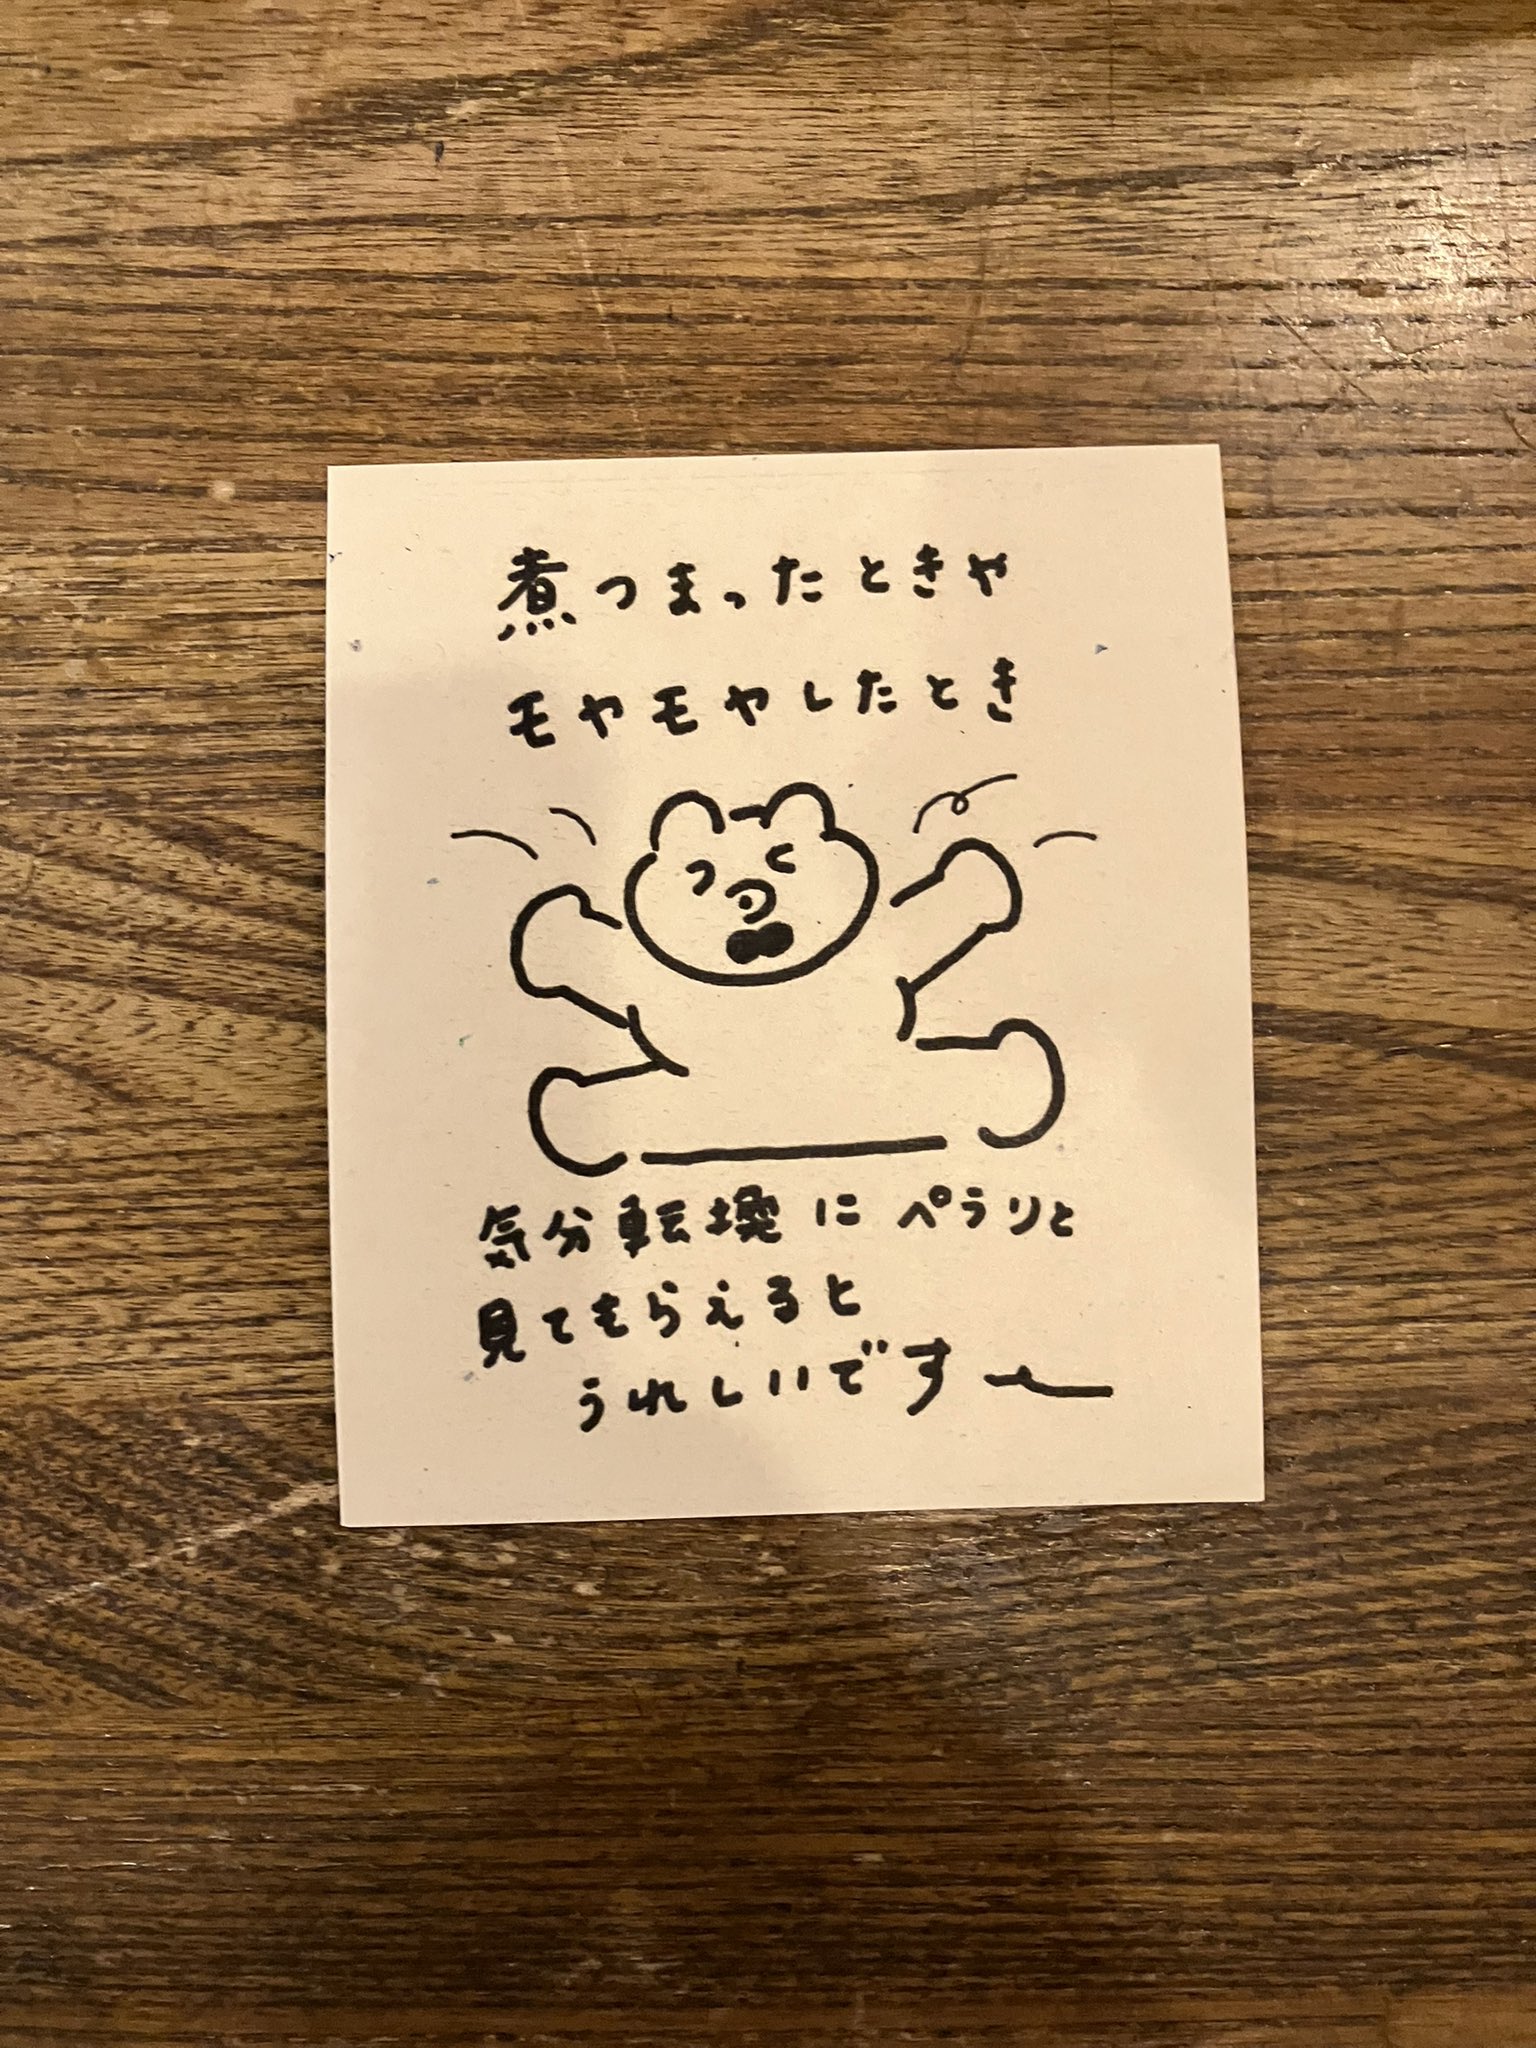 煮つまったときや
モヤモヤしたとき
気分転換に ペラリと
見てもらえると
うれしいです〜